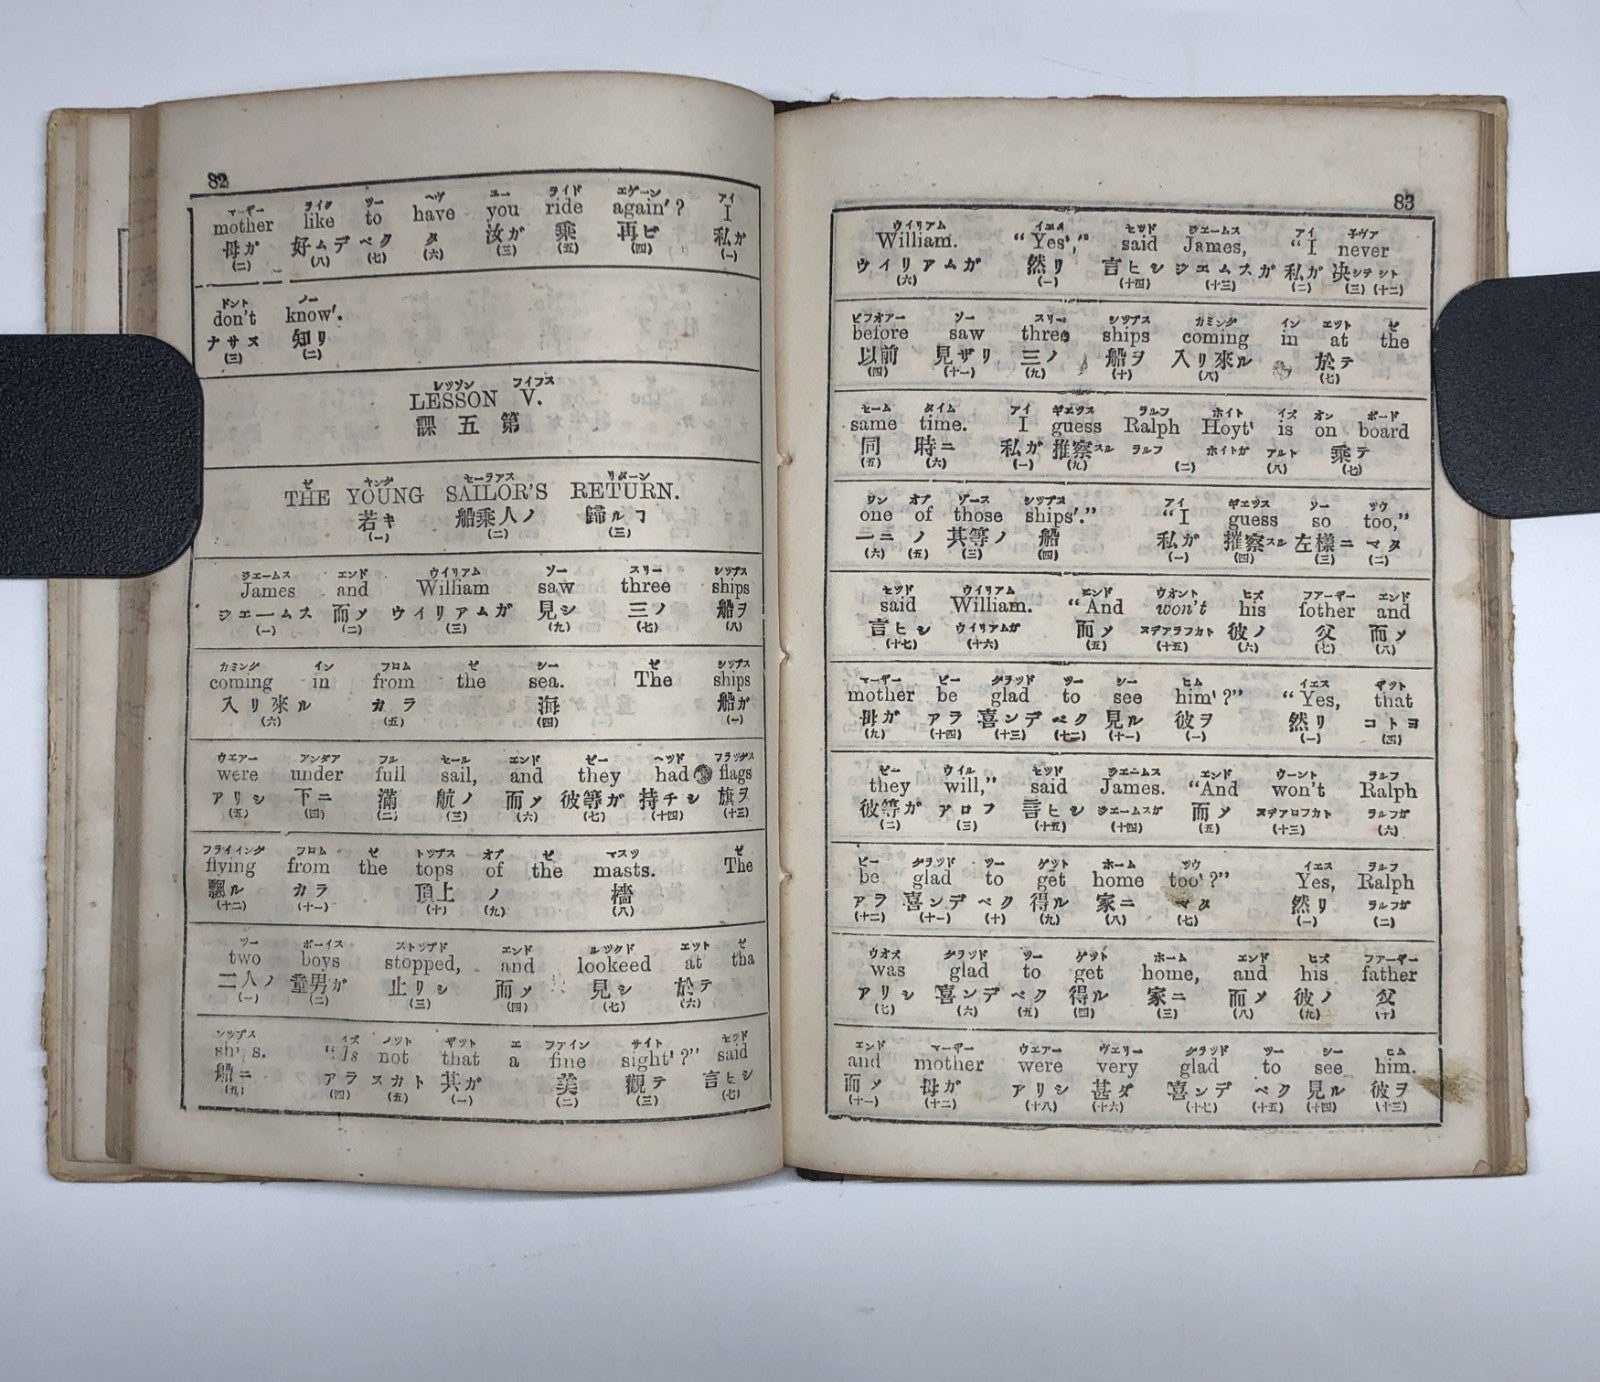 82
マーザー ライク ツー ヘヴ ユー ライド エゲーン アイ
mother like to have you ride again'? I
母ガ 好ムデ ベク タ 汝ガ 乘 再ビ 私ガ
(二) (八) (七) (六) (三) (五) (四) (一)
ドント ノー
don't know'.
ナサヌ 知リ
(三) (二)
レッソン フイフス
LESSON V.
課 五 第
ゼ ヤング セーラアス リターン
THE YOUNG SAILOR'S RETURN.
若キ 船乘人ノ 歸ルヿ
(一) (二) (三)
ジエームス エンド ウイリアム ソー スリー シップス
James and William saw three ships
ジエームス 而メ ウイリアムガ 見シ 三ノ 船ヲ
(一) (二) (三) (九) (七) (八)
カミング イン フロム ゼ シー ゼ シップス
coming in from the sea. The ships
入リ來ル カラ 海 船ガ
(六) (五) (四) (一)
ウエアー アンダア フル セール エンド ゼー ヘッド フラッグス
were under full sail, and they had flags
アリシ 下ニ 滿 航ノ 而メ 彼等ガ 持チシ 旗ヲ
(五) (四) (二) (三) (六) (七) (十四) (十三)
フライイング フロム ゼ トップス オブ ゼ マスツ ゼ
flying from the tops of the masts. The
飜ル カラ 頂上 ノ 檣
(十二) (十一) (十) (九) (八)
ツー ボーイス ストップド エンド ルックド エット ゼ
two boys stopped, and lookeed at tha
二人ノ 童男ガ 止リシ 而メ 見シ 於テ
(一) (二) (三) (四) (七) (六)
シップス イズ ノット ザット エ ファイン サイト セッド
"Is not that a fine sight'?" said
船ニ アラ スカト 其ガ 美 觀テ 言ヒシ
(九) (四) (五) (一) (二) (三) (七)
83
ウイリアム イエス セッド ジエームス アイ 子ヴア
William. "Yes'," said James, "I never
ウイリアムガ 然リ 言ヒシ ジエムスガ 私ガ 决シテ シト
(六) (一) (十四) (十三) (二) (三) (十二)
ビフオアー ソー スリー シップス カミング イン エット ゼ
before saw three ships coming in at the
以前 見ザリ 三ノ 船ヲ 入リ來ル 於テ
(四) (十一) (九) (十) (八) (七)
セーム タイム アイ ギエッス ラルフ ホイト イズ オン ボード
same time. I guess Ralph Hoyt' is on board
同 時ニ 私ガ 推察スル ラルフ ホイトガ アルト 乘テ
(五) (六) (一) (九) (二) (八) (七)
ワン オブ ゾース シップス アイ ギエッス ソー ツウ
one of those ships'." "I guess so too,"
一三ノ ノ 其等ノ 船 私ガ 推察スル 左樣ニ マタ
(六) (五) (三) (四) (一) (四) (三) (二)
セッド ウイリアム エンド ウオント ヒズ フアーザー エンド
said William. "And won't his fother and
言ヒシ ウイリアムガ 而メ ヌデアラフカト 彼ノ 父 而メ
(十七) (十六) (五) (十五) (六) (七) (八)
マーザー ビー グラッド ツー シー ヒム イエス ザット
mother be glad to see him'?" "Yes, that
母ガ アラ 喜ンデ ベク 見ル 彼ヲ 然リ コトヨ
(九) (十四) (十三) (十二) (十一) (一) (一) (四)
ゼー ウイル セッド ジエームス エンド ウーント ラルフ
they will," said James. "And won't Ralph
彼等ガ アロフ 言ヒシ ジエームスガ 而メ ヌデアロフカト ラルフガ
(二) (三) (十五) (十四) (五) (十三) (六)
ビー グラッド ツー ゲット ホーム ツウ イエス ラルフ
be glad to get home too'?" Yes, Ralph
アヲ 喜ンデ ベク 得ル 家ニ マタ 然リ ラルフガ
(十二) (十一) (十) (九) (八) (七) (一) (二)
ウオズ グラッド ツー ゲット ホーム エンド ヒズ フアーザー
was glad to get home, and his father
アリシ 喜ンデ ベク 得ル 家ニ 而メ 彼ノ 父
(七) (六) (五) (四) (三) (八) (九) (十)
エンド マーザー ウエアー ヴエリー グラッド ツー シー ヒム
and mother were very glad to see him.
而メ 母ガ アリシ 甚ダ 喜ンデ ベク 見ル 彼ヲ
(十一) (十二) (十八) (十六) (十七) (十五) (十四) (十三)